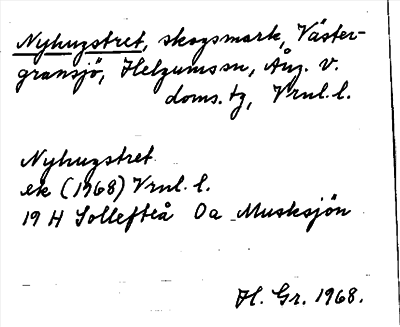 Nyhugstret, skogsmark, Väster-
gransjö, Helgumssn, Ång. v.
doms. tg, Vrnl. l.
Nyhugstret
ek (1968) Vrnl. l.
19 H Sollefteå 0a Musksjön
H. Gr. 1968.